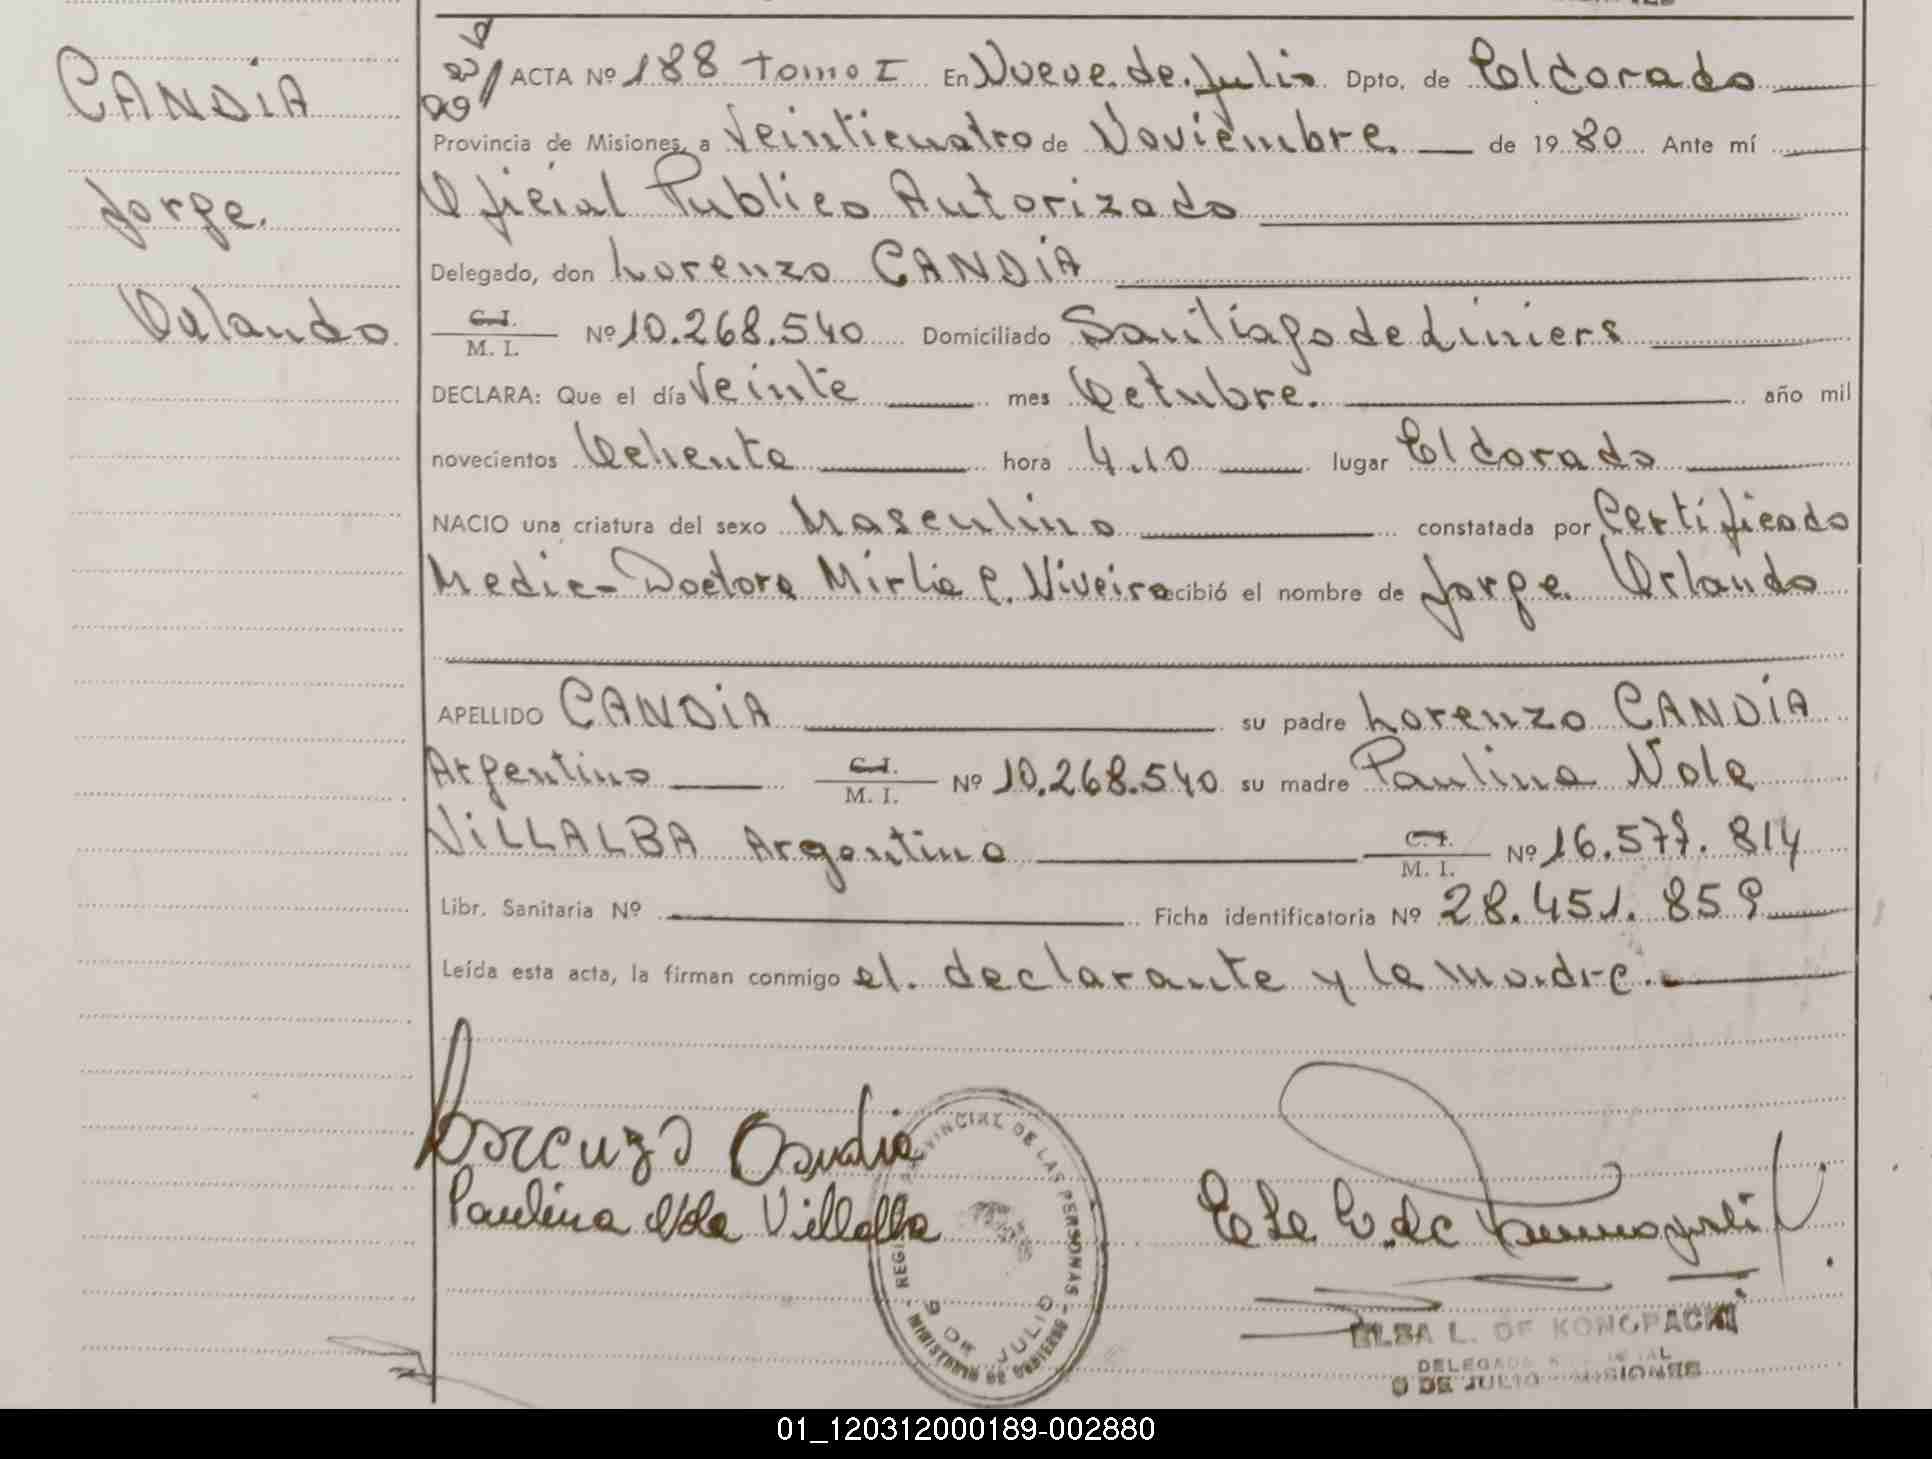 CANDIA
Jorge.
Orlando
ACTA Nº 188 Tomo I En Nueve de Julio Dpto. de Eldorado
Provincia de Misiones, a Veinticuatro de Noviembre. de 19 80 Ante mí
Oficial Publico Autorizado
Delegado, don Lorenzo CANDIA
C.I.
M. I. Nº 10.268.540 Domiciliado Santiago de Liniers
DECLARA: Que el día Veinte mes Octubre. año mil
novecientos Ochenta hora 4.10 lugar Eldorado
NACIO una criatura del sexo Masculino constatada por Certificado
Medic- Doctora Mirlia C. Niveiro recibió el nombre de Jorge. Orlando
APELLIDO CANDIA su padre Lorenzo CANDIA
Argentino C.I.
M. I. Nº 10.268.540 su madre Paulina Nole
VILLALBA Argentina C.I.
M. I. Nº 16.577.814
Libr. Sanitaria Nº Ficha identificatoria Nº 28.451.859
Leída esta acta, la firman conmigo el. declarante y la madre.
Lorenzo Candia
Paulina Villalba
PROVINCIAL DE LAS PERSONAS
MINISTERIO DE GOBIERNO
9 DE JULIO
ELSA L. DE KONOPACKI
DELEGADA
9 DE JULIO MISIONES
01_120312000189-002880